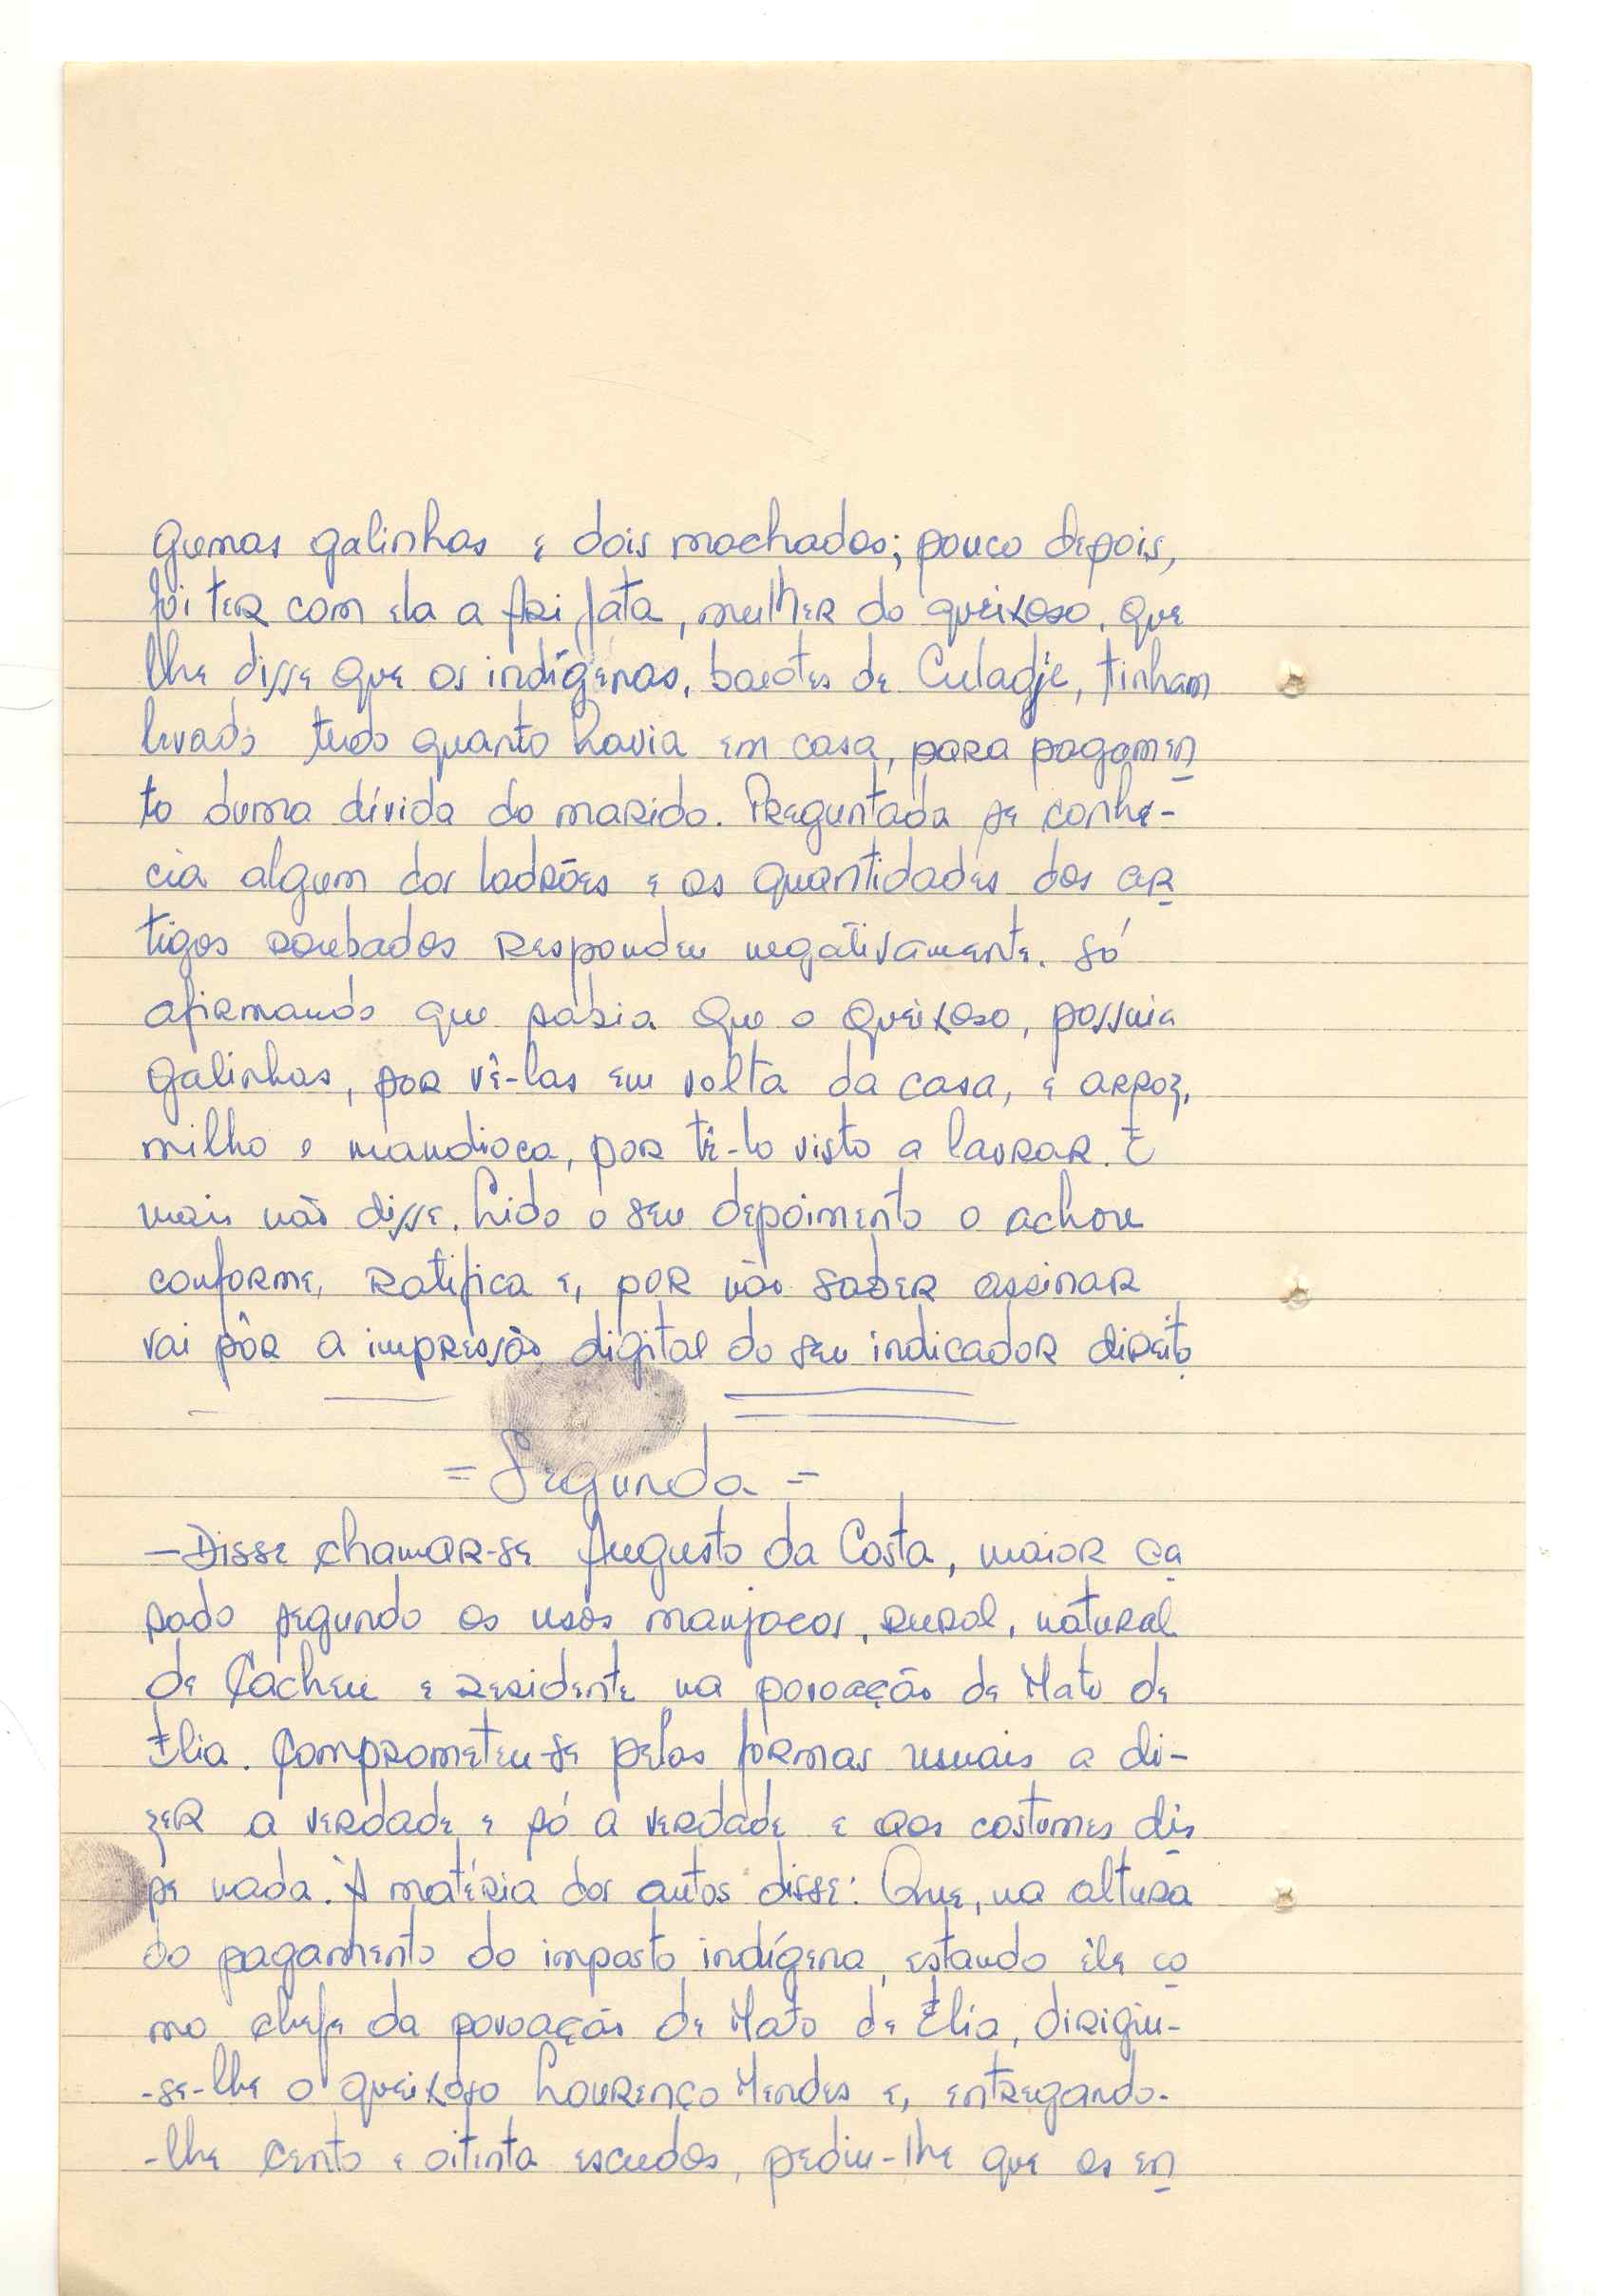 gumas galinhas e dois machados; pouco depois,
foi ter com ela a Afri fata, mulher do queixoso, que
lhe disse que os indígenas, baiotes de Culadje, tinham
levado tudo quanto havia em casa, para pagamen
to duma dívida do marido. Preguntada se conhe-
cia algum dos ladrões e as quantidades dos ar
tigos roubados respondeu negativamente. Só
afirmando que sabia que o queixoso, possuia
galinhas, por vê-las em volta da casa, e arroz,
milho e mandioca, por tê-lo visto a lavrar. E
mais não disse. Lido o seu depoimento o achou
conforme, ratifica e, por não saber assinar
vai pôr a impressão digital do seu indicador direito
= Segunda =
— Disse chamar-se Augusto da Costa, maior ca
sado segundo os usos manjacos, rural, natural
de Cacheu e residente na povoação de Mato de
Elia. Comprometeu-se pelas formas usuais a di-
zer a verdade e só a verdade e aos costumes dis
se nada. À matéria dos autos disse: Que, na altura
do pagamento do imposto indígena, estando êle co
mo chefe da povoação de Mato de Elia, dirigiu-
-se-lhe o queixoso Lourenço Mendes e, entregando-
-lhe cento e oitenta escudos, pediu-lhe que os en